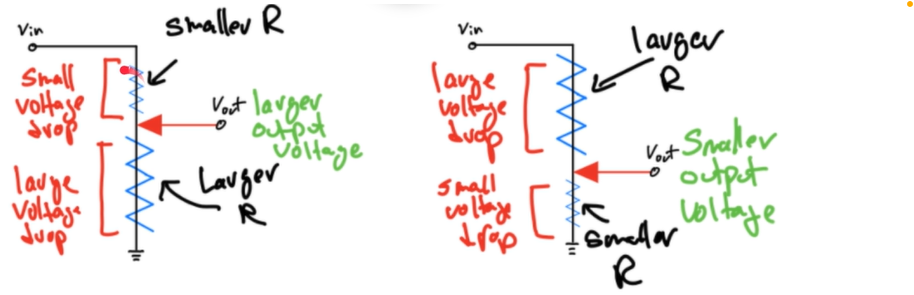 Vin
smaller R
small
voltage
drop
Vout
larger
output
voltage
large
voltage
drop
Larger
R
Vin
larger
R
large
voltage
drop
Vout
Smaller
output
voltage
small
voltage
drop
smaller
R